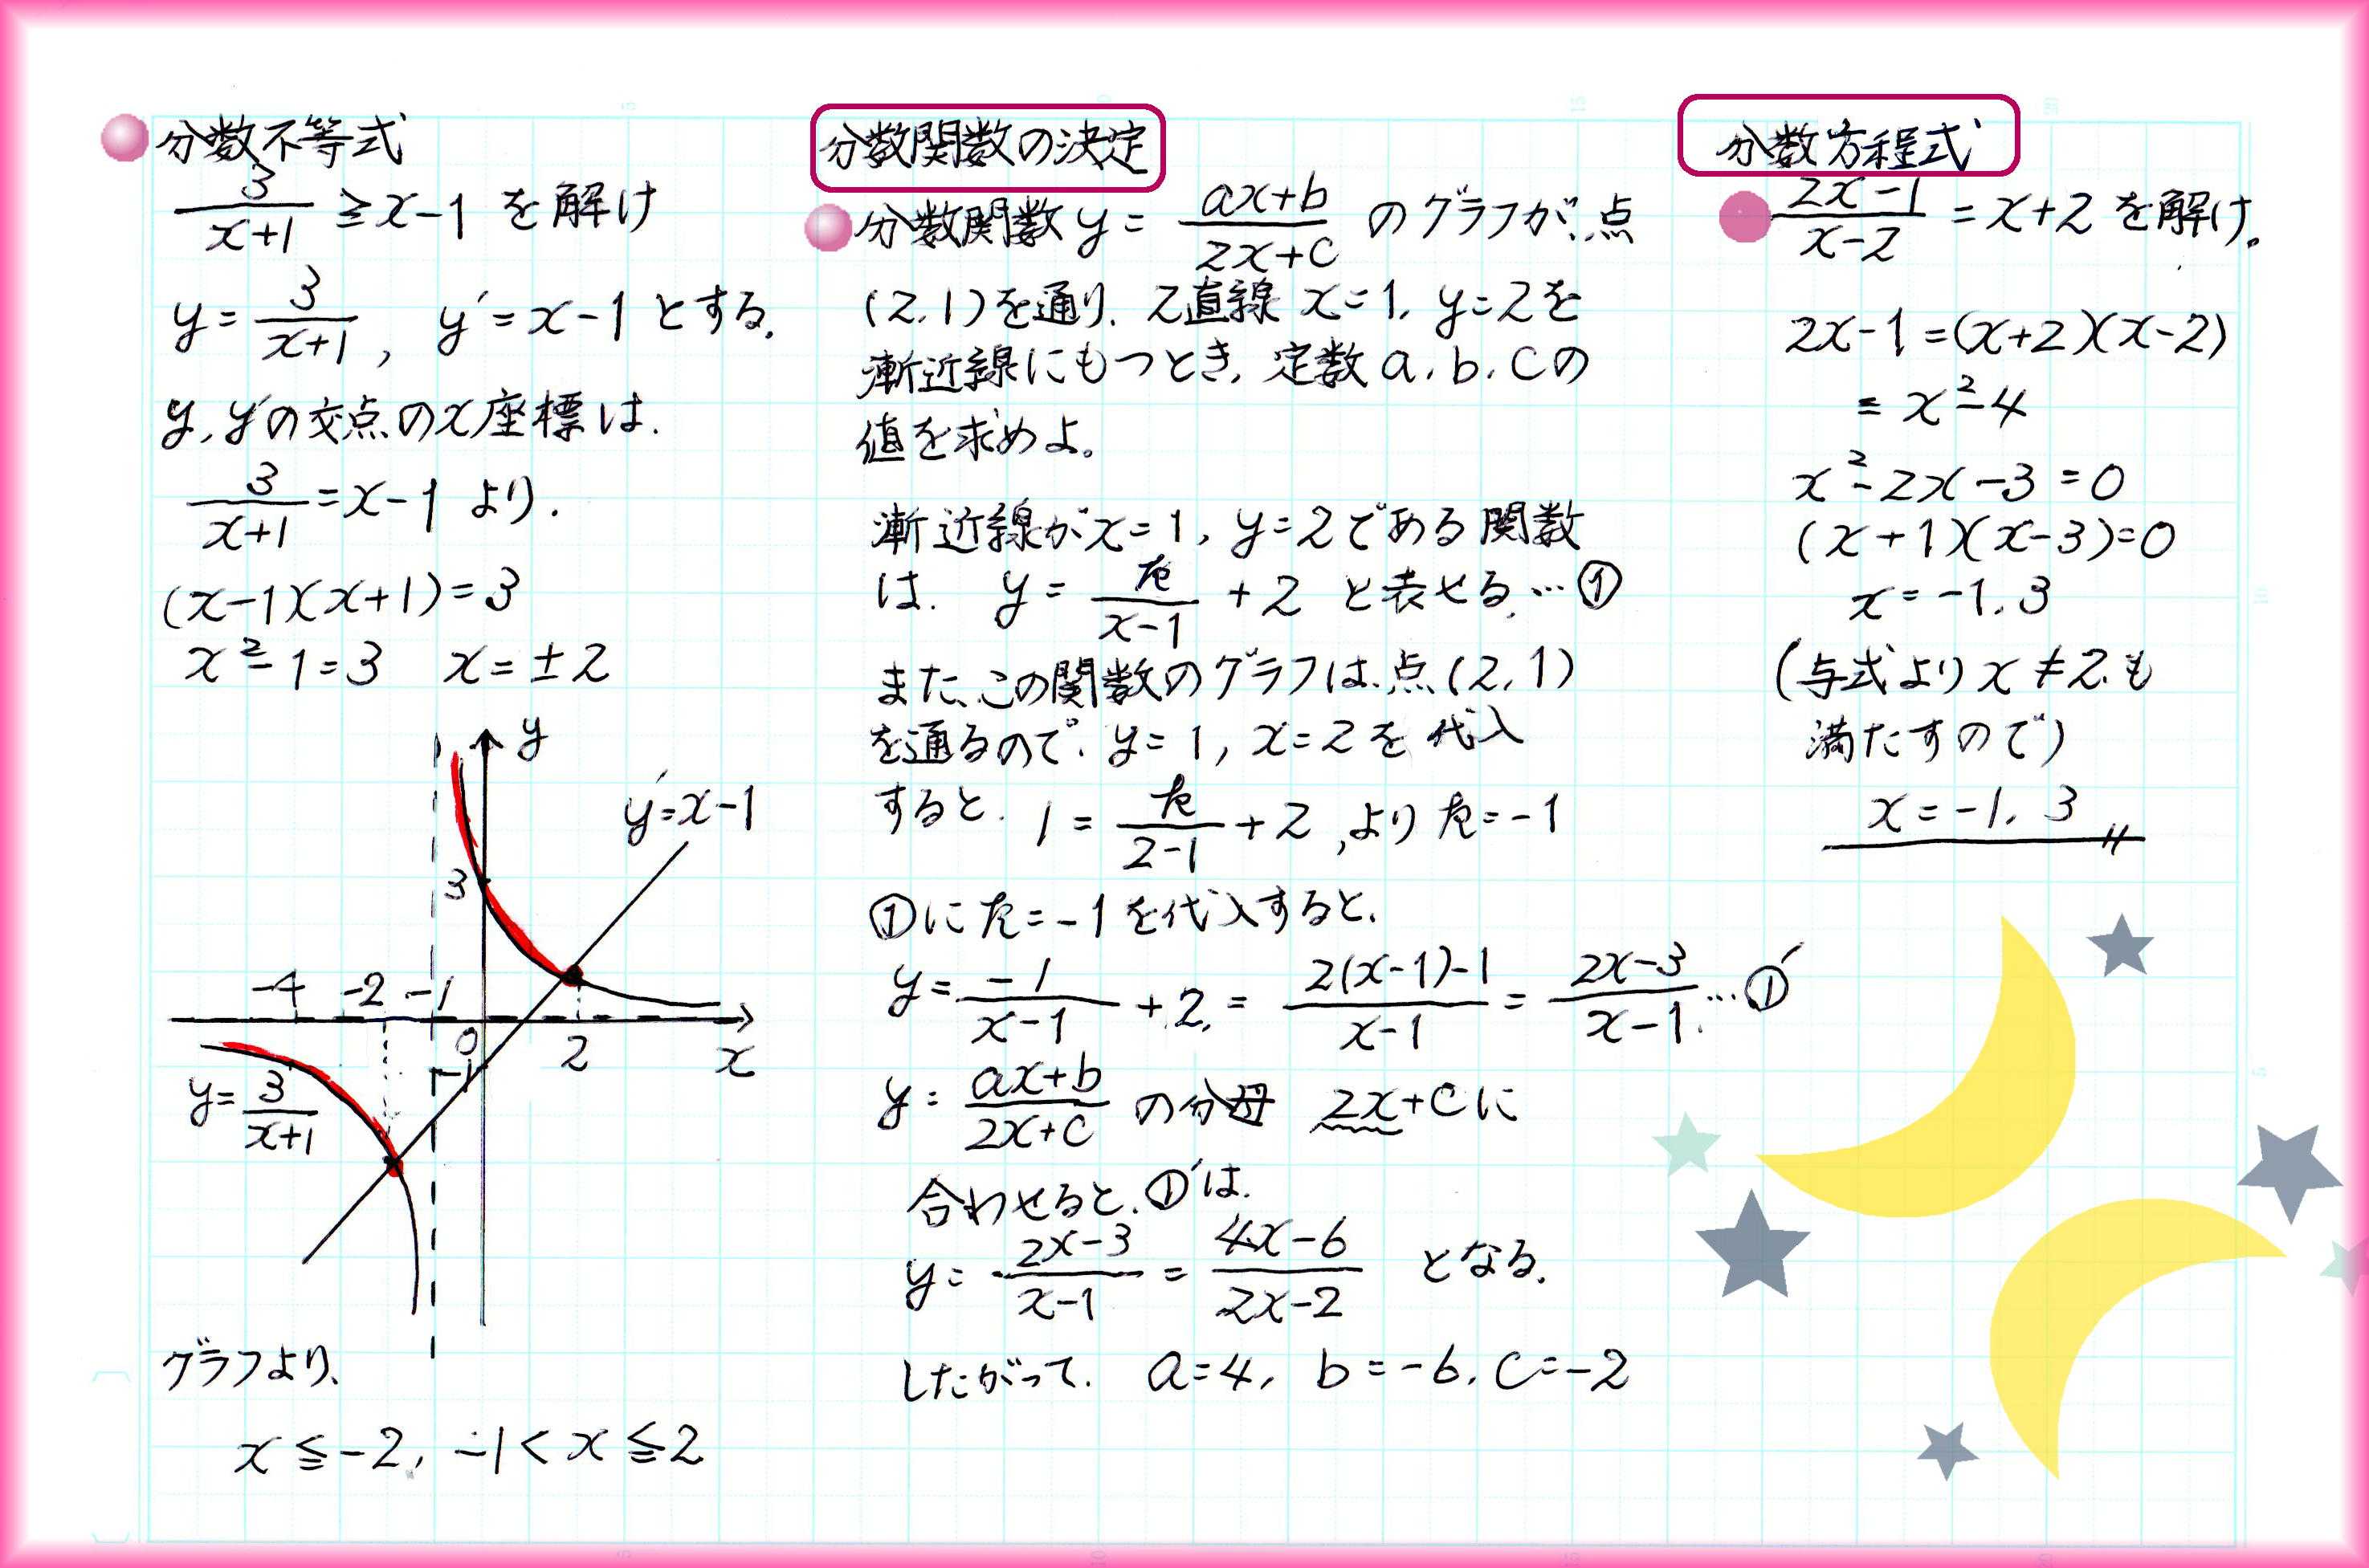 分数不等式
3/(x+1) ≧ x-1 を解け
y = 3/(x+1), y′ = x-1 とする.
y, y′の交点のx座標は.
3/(x+1) = x-1 より.
(x-1)(x+1) = 3
x²-1=3 x=±2
y
y′=x-1
3
-4 -2 -1
0 2 x
-1
y = 3/(x+1)
グラフより、
x ≦ -2, -1 < x ≦ 2
分数関数の決定
分数関数 y = (ax+b)/(2x+c) のグラフが、点
(2,1)を通り. 2直線 x=1, y=2を
漸近線にもつとき, 定数 a, b, cの
値を求めよ。
漸近線がx=1, y=2である関数
は. y = k/(x-1) +2 と表せる. …①
また、この関数のグラフは.点(2,1)
を通るので. y=1, x=2を代入
すると. 1 = k/(2-1) +2 ,より k=-1
①にk=-1を代入すると.
y = -1/(x-1) +2. = (2(x-1)-1)/(x-1) = (2x-3)/(x-1). …①′
y = (ax+b)/(2x+c) の分母 2x+cに
合わせると. ①′は.
y = (2x-3)/(x-1) = (4x-6)/(2x-2) となる.
したがって. a=4, b=-6, c=-2
分数方程式
(2x-1)/(x-2) = x+2 を解け。
2x-1=(x+2)(x-2)
= x²-4
x²-2x-3=0
(x+1)(x-3)=0
x=-1, 3
(与式よりx≠2も
満たすので)
x=-1, 3